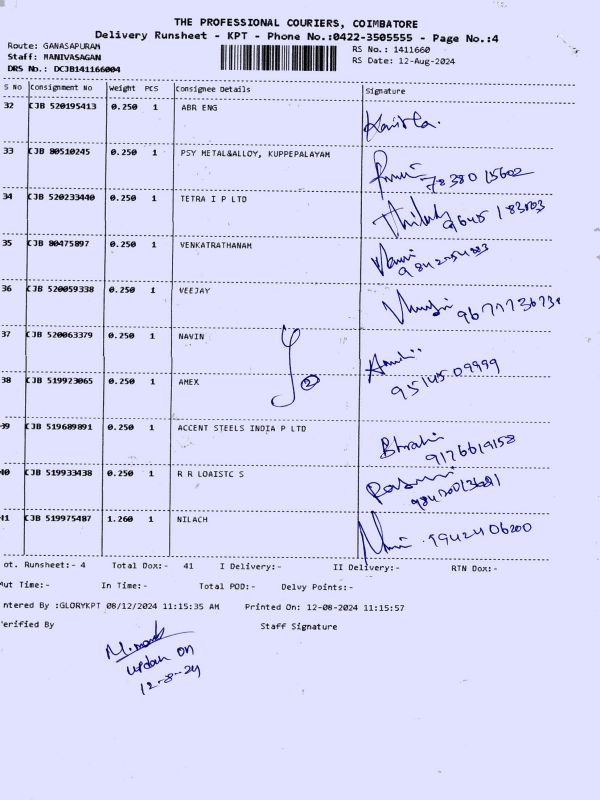 THE PROFESSIONAL COURIERS, COIMBATORE
Delivery Runsheet - KPT - Phone No.:0422-3505555 - Page No.:4
Route: GANASAPURAM
RS No.: 1411660
Staff: MANIVASAGAN
RS Date: 12-Aug-2024
DRS No.: DCJB141166004
S No Consignment No Weight PCS Consignee Details Signature
32 CJB 520195413 0.250 1 ABR ENG
33 CJB 80510245 0.250 1 PSY METAL&ALLOY, KUPPEPALAYAM
34 CJB 520233440 0.250 1 TETRA I P LTD
35 CJB 80475897 0.250 1 VENKATRATHANAM
36 CJB 520059338 0.250 1 VEEJAY
37 CJB 520063379 0.250 1 NAVIN
38 CJB 519923065 0.250 1 AMEX
2
95145 09999
39 CJB 519689891 0.250 1 ACCENT STEELS INDIA P LTD
9176619158
40 CJB 519933438 0.250 1 R R LOAISTC S
41 CJB 519975487 1.260 1 NILACH
9942406200
ot. Runsheet:- 4 Total Dox:- 41 I Delivery:- II Delivery:- RTN Dox:-
Out Time:- In Time:- Total POD:- Delvy Points:-
ntered By :GLORYKPT 08/12/2024 11:15:35 AM Printed On: 12-08-2024 11:15:57
Verified By Staff Signature
updan on
12-8-24